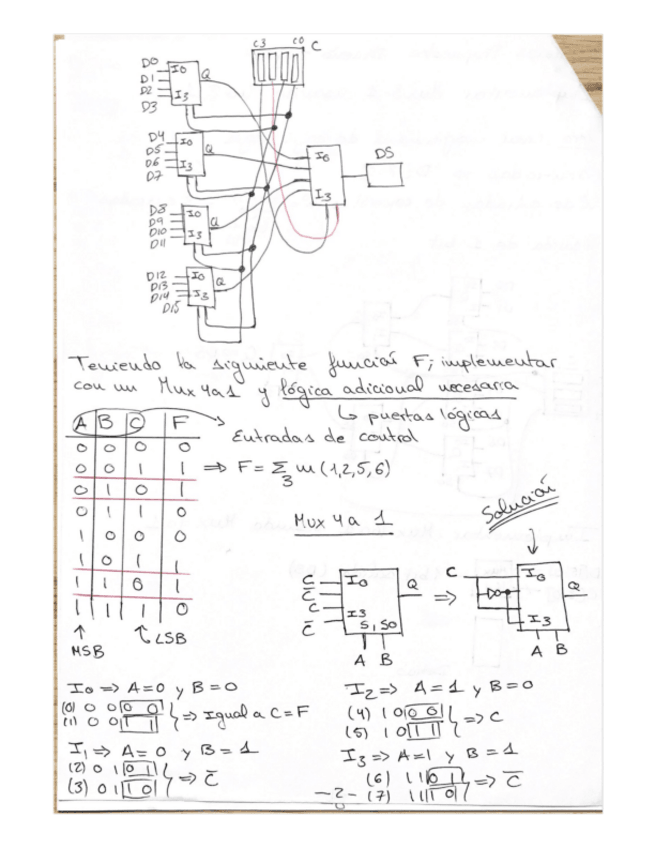 C3 C0 C
D0 I0 Q
D1
D2 I3
D3
D4 I0 Q
D5
D6 I3
D7
I0 DS
I3
D8 I0 Q
D9
D10 I3
D11
D12 I0 Q
D13
D14 I3
D15
Teniendo la siguiente función F; implementar
con un Mux 4a1 y lógica adicional necesaria
↳ puertas lógicas
A B C F
Entradas de control
0 0 0 0
0 0 1 1 ⇒ F = Σ3 m (1,2,5,6)
0 1 0 1
0 1 1 0
1 0 0 0
1 0 1 1
1 1 0 1
1 1 1 0
MSB LSB
Mux 4 a 1
Solución
C̅ I0 Q ⇒ C I0 Q
C̅
C I3
C̅ S1 S0 I3
A B A B
I0 ⇒ A=0 y B=0
(0) 0 0 0 0
(1) 0 0 1 1 ⇒ Igual a C=F
I1 ⇒ A=0 y B=1
(2) 0 1 0 1
(3) 0 1 1 0 ⇒ C̅
I2 ⇒ A=1 y B=0
(4) 1 0 0 0
(5) 1 0 1 1 ⇒ C
I3 ⇒ A=1 y B=1
(6) 1 1 0 1
(7) 1 1 1 0 ⇒ C̅
-2-